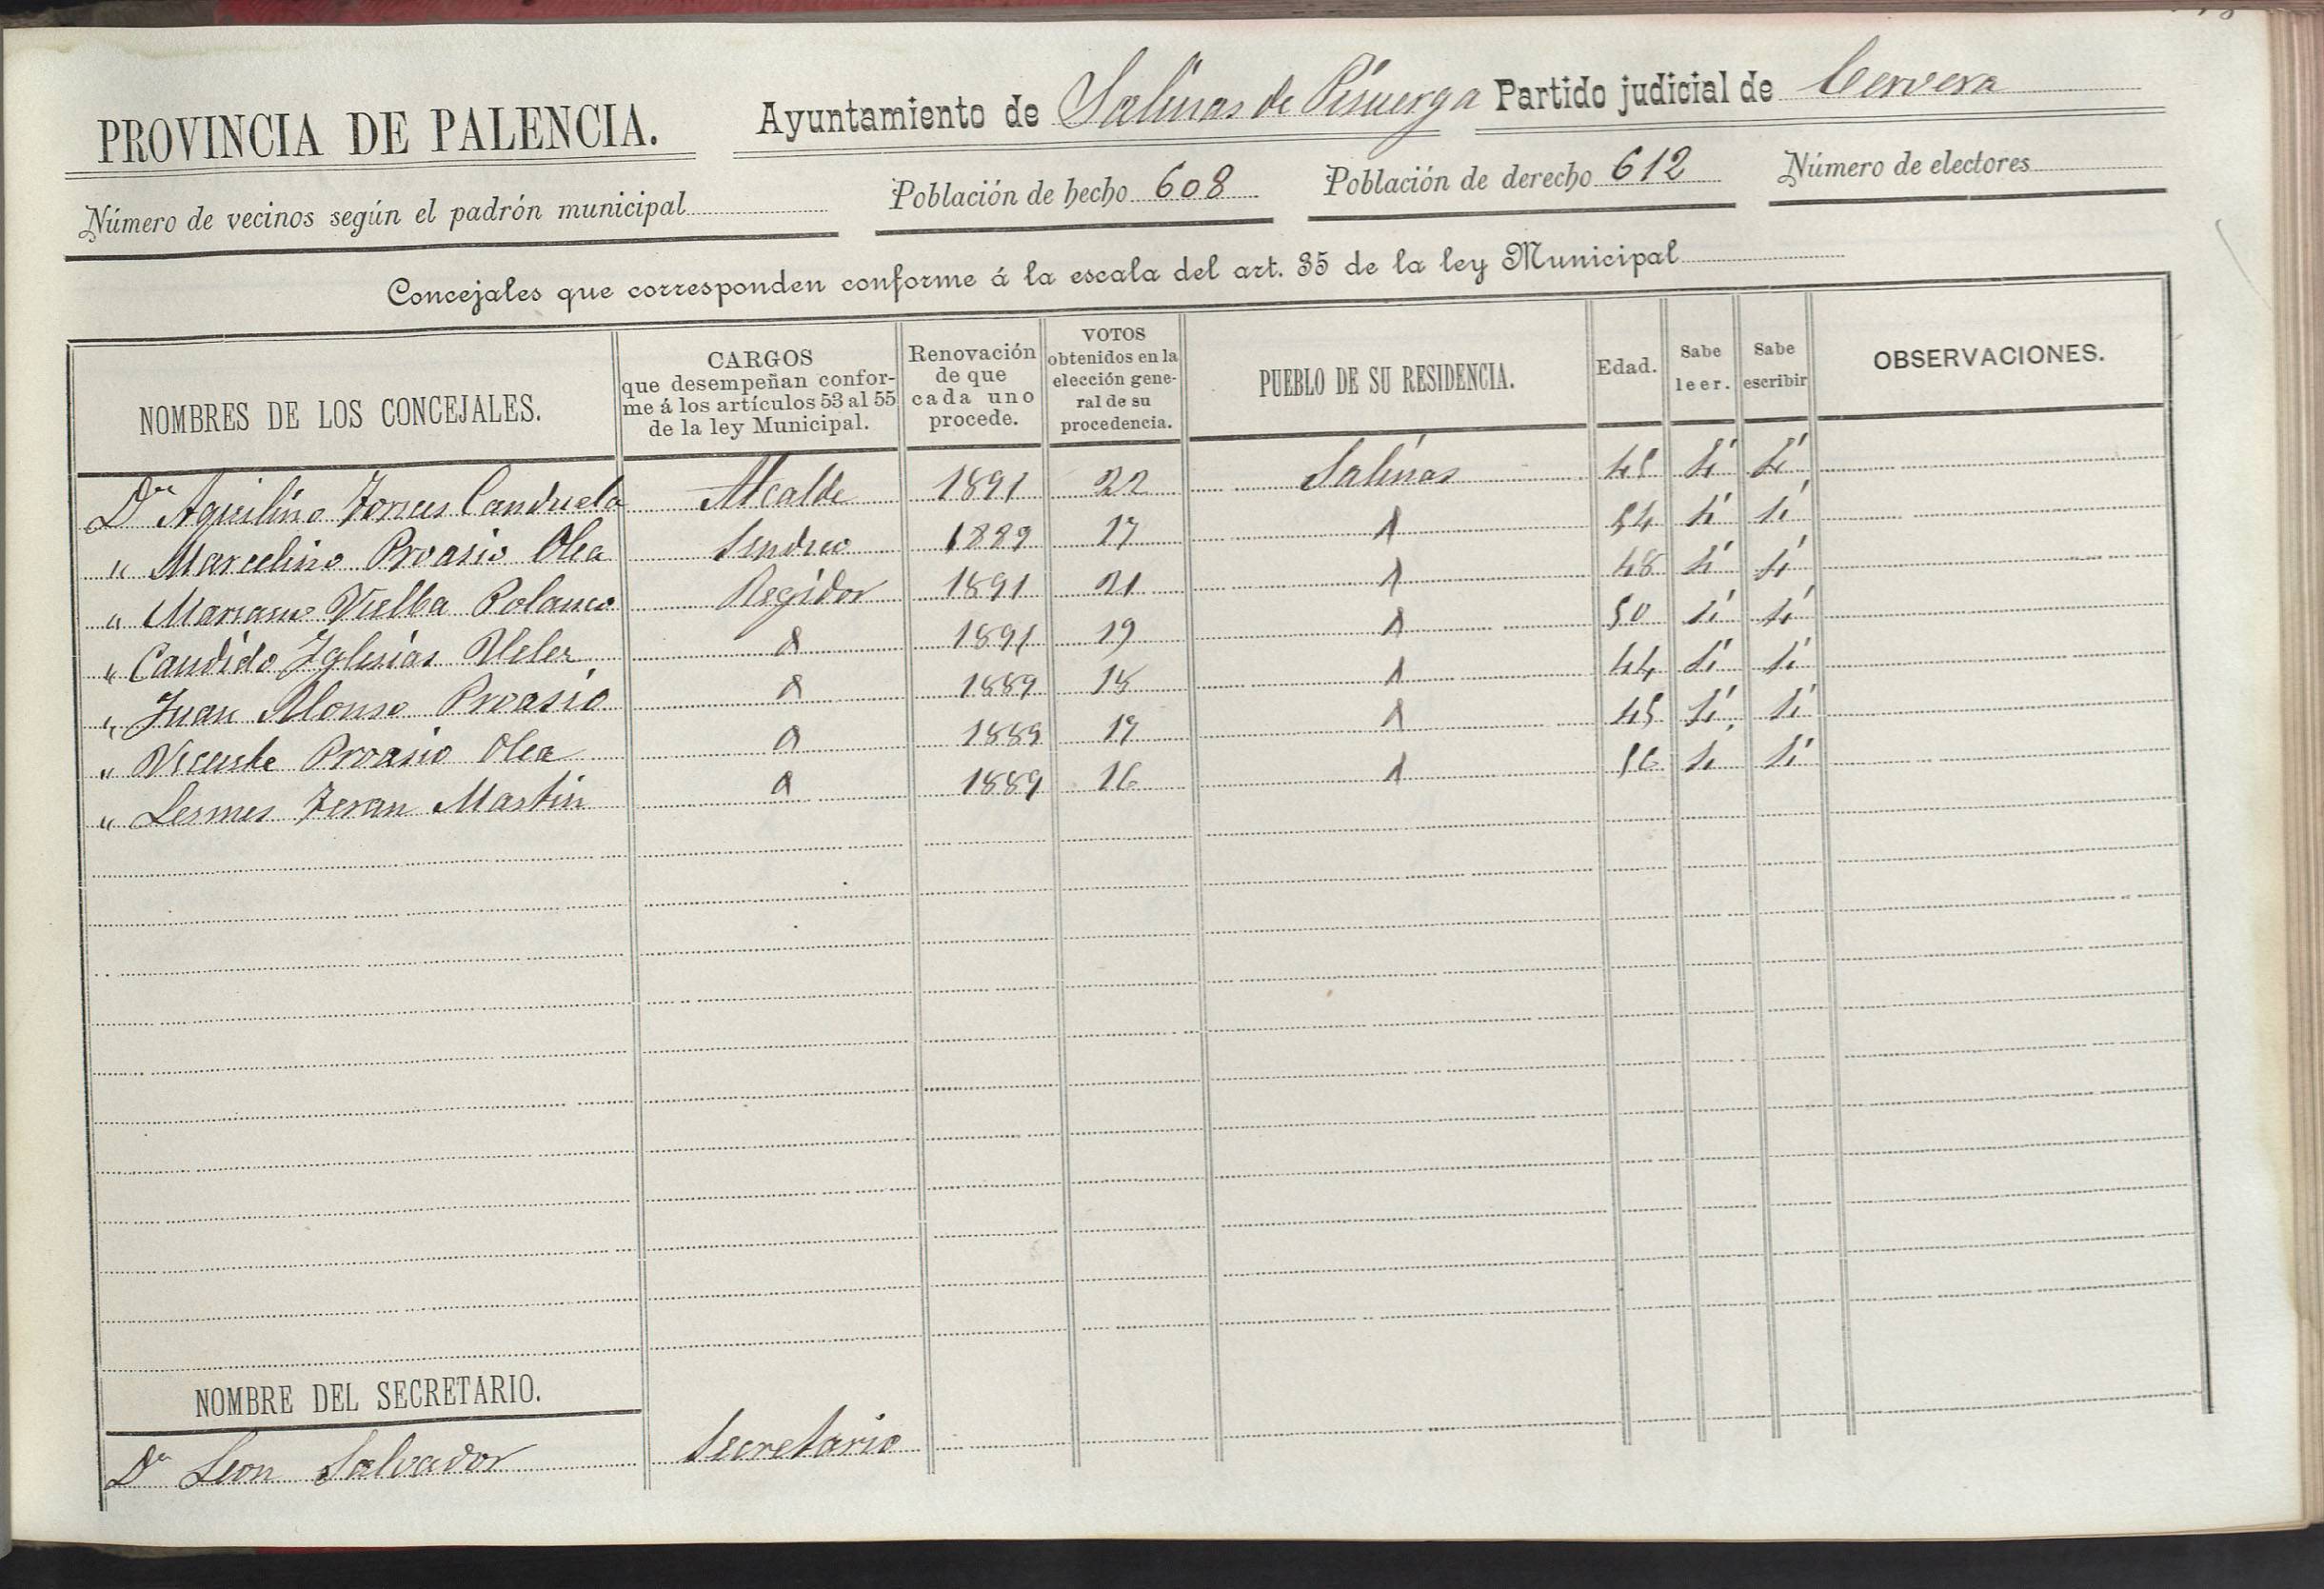 PROVINCIA DE PALENCIA. Ayuntamiento de Salinas de Pisuerga Partido judicial de Cervera
Número de vecinos según el padrón municipal Población de hecho 608 Población de derecho 612 Número de electores
Concejales que corresponden conforme á la escala del art. 35 de la ley Municipal
NOMBRES DE LOS CONCEJALES.
CARGOS
que desempeñan confor-
me á los artículos 53 al 55
de la ley Municipal.
Renovación
de que
cada uno
procede.
VOTOS
obtenidos en la
elección gene-
ral de su
procedencia.
PUEBLO DE SU RESIDENCIA.
Edad.
Sabe
leer.
Sabe
escribir
OBSERVACIONES.
Dn Aquilino Torices Canduela Alcalde 1891 22 Salinas 45 Si Si
" Marcelino Proasio Olea Sindico 1889 17 54 Si Si
" Mariano Vielba Polanco Regidor 1891 21 48 Si Si
" Candido Iglesias 1891 19 50 Si Si
" Juan Alonso Proasio 1889 18 44 Si Si
" Vicente Proasio Olea 1889 17 45 Si Si
" Lesmes Teran Martin 1889 16 56 Si Si
NOMBRE DEL SECRETARIO.
Dn Leon Salvador Secretario